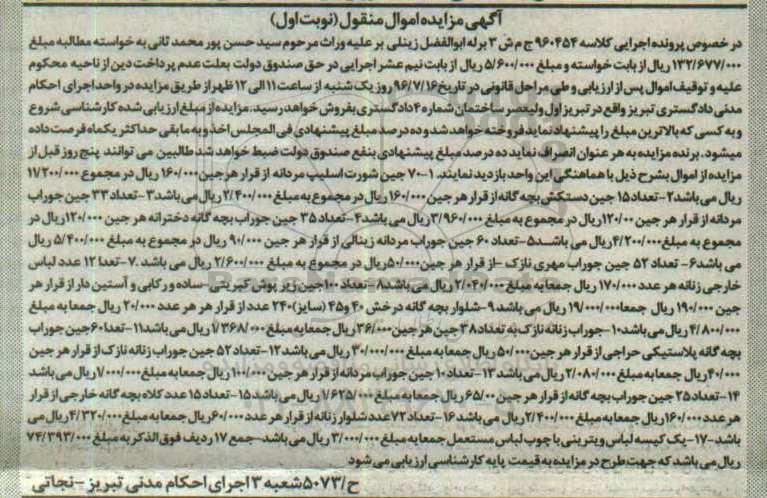 آگهی مزایده اموال منقول (نوبت اول)
در خصوص پرونده اجرایی کلاسه ۹۶۰۴۵۴ ج م ش ۳ برله ابوالفضل زینلی بر علیه وراث مرحوم سید حسن پور محمد ثانی به خواسته مطالبه مبلغ
۱۳۲/۶۷۷/۰۰۰ ریال از بابت خواسته و مبلغ ۵/۶۰۰/۰۰۰ ریال از بابت نیم عشر اجرایی در حق صندوق دولت بعلت عدم پرداخت دین از ناحیه محکوم
علیه و توقیف اموال پس از ارزیابی و طی مراحل قانونی در تاریخ ۹۶/۷/۱۶ روز یک شنبه از ساعت ۱۱ الی ۱۲ ظهر از طریق مزایده در واحد اجرای احکام
مدنی دادگستری تبریز واقع در تبریز اول ولیعصر ساختمان شماره ۴ دادگستری بفروش خواهد رسید. مزایده از مبلغ ارزیابی شده کارشناسی شروع
و به کسی که بالاترین مبلغ را پیشنهاد نماید فروخته خواهد شد و ده درصد مبلغ پیشنهادی فی المجلس اخذ و به مابقی حداکثر یکماه فرصت داده
میشود. برنده مزایده به هر عنوان انصراف نماید ده درصد مبلغ پیشنهادی بنفع صندوق دولت ضبط خواهد شد طالبین می توانند پنج روز قبل از
مزایده از اموال بشرح ذیل با هماهنگی این واحد بازدید نمایند. ۱-۷۰ جین شورت اسلیپ مردانه از قرار هر جین ۱۶۰/۰۰۰ ریال در مجموع ۱۱/۲۰۰/۰۰۰
ریال می باشد ۲-تعداد ۱۵ جین دستکش بچه گانه از قرار هر جین ۱۶۰/۰۰۰ ریال در مجموع به مبلغ ۲/۴۰۰/۰۰۰ ریال می باشد ۳-تعداد ۳۳ جین جوراب
مردانه از قرار هر جین ۱۲۰/۰۰۰ ریال در مجموع به مبلغ ۳/۹۶۰/۰۰۰ ریال می باشد ۴-تعداد ۳۵ جین جوراب بچه گانه دخترانه هر جین ۱۲۰/۰۰۰ ریال در
مجموع به مبلغ ۴/۲۰۰/۰۰۰ ریال می باشد ۵-تعداد ۶۰ جین جوراب مردانه زینالی از قرار هر جین ۹۰/۰۰۰ ریال در مجموع به مبلغ ۵/۴۰۰/۰۰۰ ریال
می باشد ۶- تعداد ۵۲ جین جوراب مهری نازک - از قرار هر جین ۵۰/۰۰۰ ریال در مجموع به مبلغ ۲/۶۰۰/۰۰۰ ریال می باشد .۷-تعدا ۱۲ عدد لباس
خارجی زنانه هر عدد ۱۷۰/۰۰۰ ریال جمعا به مبلغ ۲/۰۴۰/۰۰۰ ریال می باشد ۸-تعداد ۱۰۰ جین زیر پوش کبریتی -ساده و رکابی و آستین دار از قرار هر
جین ۱۹۰/۰۰۰ ریال جمعا ۱۹/۰۰۰/۰۰۰ ریال می باشد ۹-شلوار بچه گانه درخش ۴۰ و ۴۵ (سایز) ۲۴۰ عدد از قرار هر هر عدد ۲۰/۰۰۰ ریال جمعا به مبلغ
۴/۸۰۰/۰۰۰ ریال می باشد ۱۰-جوراب زنانه نازک به تعداد ۳۸ جین هر جین ۳۶/۰۰۰ ریال جمعا به مبلغ ۱/۳۶۸/۰۰۰ ریال می باشد ۱۱-تعدا ۶۰ جین جوراب
بچه گانه پلاستیکی حراجی از قرار هر جین ۵۰/۰۰۰ ریال جمعا به مبلغ ۳۰/۰۰۰/۰۰۰ ریال می باشد ۱۲-تعداد ۵۲ جین جوراب زنانه نازک از قرار هر جین
۴۰/۰۰۰ ریال جمعا به مبلغ ۲/۰۸۰/۰۰۰ ریال می باشد ۱۳-تعداد ۱۰ جین جوراب مردانه از قرار هر جین ۱۰۰/۰۰۰ ریال جمعا به مبلغ ۱/۰۰۰/۰۰۰ ریال می باشد
۱۴-تعداد ۲۵ جین جوراب بچه گانه از قرار هر جین ۶۵/۰۰۰ ریال جمعا به مبلغ ۱/۶۲۵/۰۰۰ ریال می باشد ۱۵-تعداد ۱۵ عدد کلاه بچه گانه خارجی از قرار
هر عدد ۱۶۰/۰۰۰ ریال جمعا به مبلغ ۲/۴۰۰/۰۰۰ ریال می باشد ۱۶-تعداد ۷۲ عدد شلوار زنانه از قرار هر عدد ۶۰/۰۰۰ ریال جمعا به مبلغ ۴/۳۲۰/۰۰۰ ریال می
باشد-۱۷-یک کیسه لباس ویترینی با چوب لباس مستعمل جمعا به مبلغ ۳/۰۰۰/۰۰۰ ریال می باشد-جمع ۱۷ ردیف فوق الذکر به مبلغ ۷۴/۳۹۳/۰۰۰
ریال می باشد که جهت طرح در مزایده به قیمت پایه کارشناسی ارزیابی می شود
ح/۵۰۷۳ شعبه ۳ اجرای احکام مدنی تبریز -نجاتی